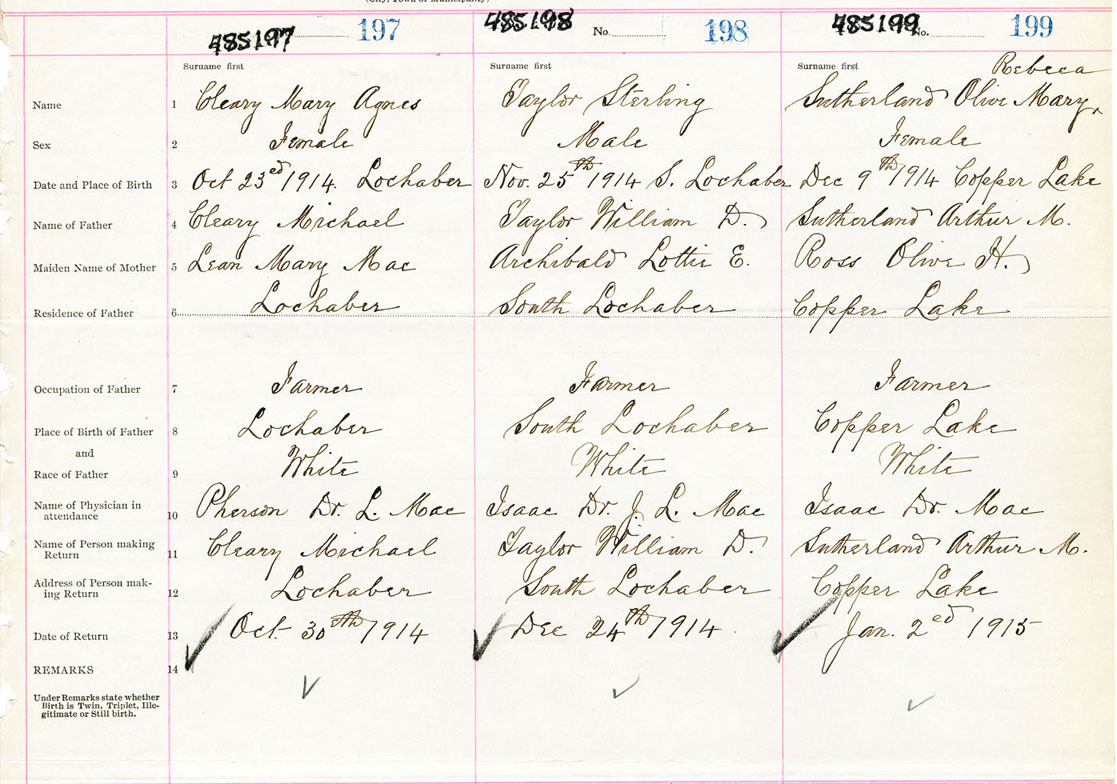 (City, Town or Municipality)
485197 197 485198 No. 198 485199 No. 199
Surname first Surname first Surname first Rebeca
Name 1 Cleary Mary Agnes Taylor Sterling Sutherland Olive Mary
Sex 2 Female Male Female
Date and Place of Birth 3 Oct 23ed 1914 Lochaber Nov. 25th 1914 S. Lochaber Dec 9th 1914 Copper Lake
Name of Father 4 Cleary Michael Taylor William D. Sutherland Arthur M.
Maiden Name of Mother 5 Lean Mary Mac Archibald Lottie E. Ross Olive H.
Residence of Father 6 Lochaber South Lochaber Copper Lake
Occupation of Father 7 Farmer Farmer Farmer
Place of Birth of Father 8 Lochaber South Lochaber Copper Lake
and
Race of Father 9 White White White
Name of Physician in
attendance 10 Pherson Dr. L. Mac Isaac Dr. J. L. Mac Isaac Dr. Mac
Name of Person making
Return 11 Cleary Michael Taylor William D. Sutherland Arthur M.
Address of Person mak-
ing Return 12 Lochaber South Lochaber Copper Lake
Date of Return 13 Oct 30th 1914 Dec 24th 1914 Jan. 2ed 1915
REMARKS 14
Under Remarks state whether
Birth is Twin, Triplet, Ille-
gitimate or Still birth.